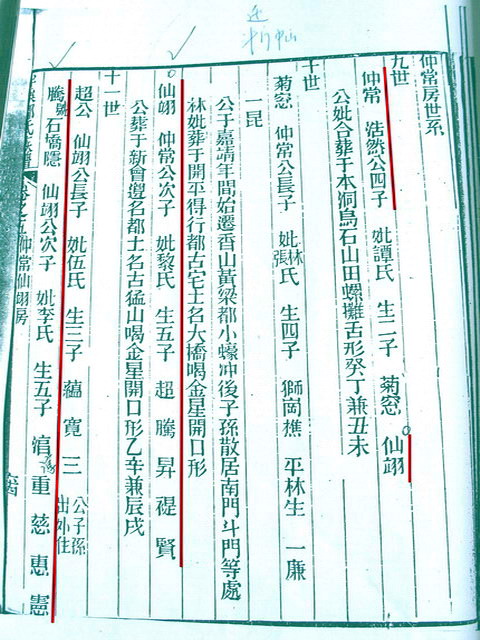 仲常房世系
九世
仲常 浩然公四子 妣譚氏 生二子 菊窓 仙翊
公妣合葬于本洞鳥石山田螺攤舌形癸丁兼丑未
十世
菊窓 仲常公長子 妣林張氏 生四子 獅崗樵 平林生 一廉
一昆
公于嘉靖年間始遷香山黃梁都小濠冲後子孫散居南門斗門等處
林妣葬于開平得行都古宅土名大擔喝金星開口形
仙翊 仲常公次子 妣黎氏 生五子 超 騰 昇 禔 賢
公葬于新會遵名都土名古猛山喝金星開口形乙辛兼辰戌
十一世
超公 仙翊公長子 妣伍氏 生三子 蘊 寬 三 公子孫出外住
騰號石橋隱 仙翊公次子 妣李氏 生五子 重 慈 惠 憲
卷之五仲常仙翊房